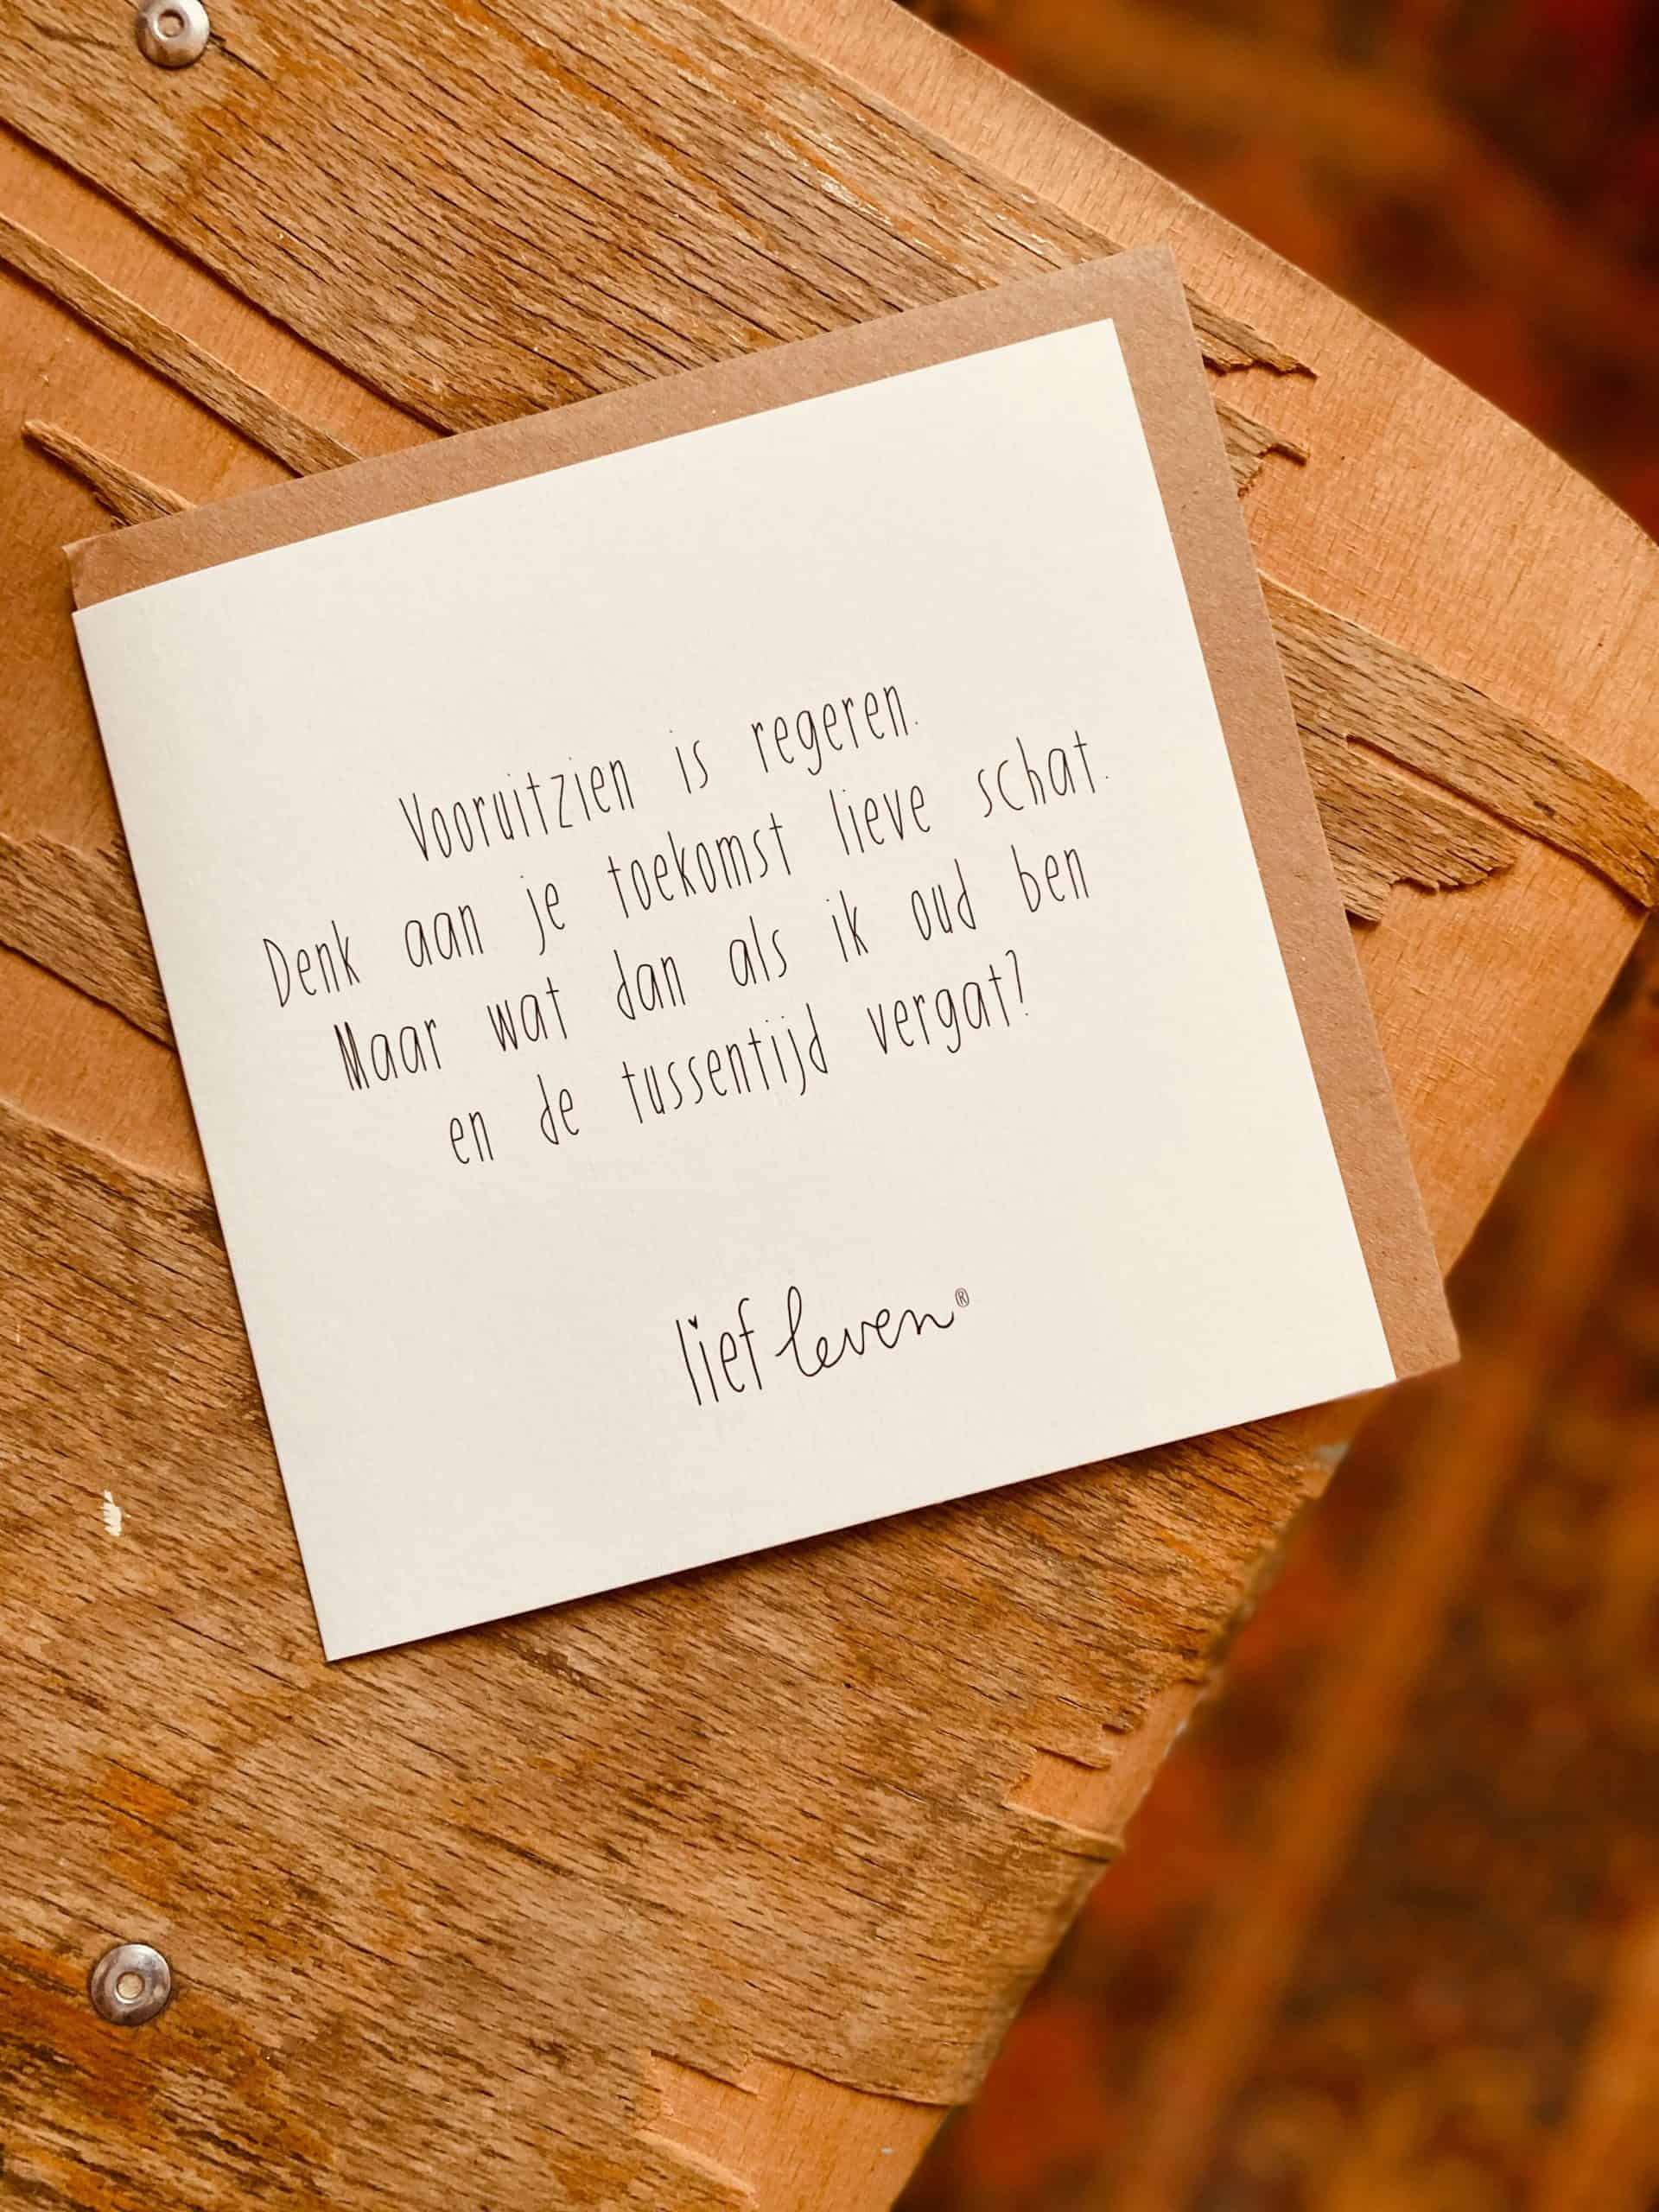 Vooruitzien is regeren.
Denk aan je toekomst lieve schat.
Maar wat dan als ik oud ben
en de tussentijd vergat?
lief leven®